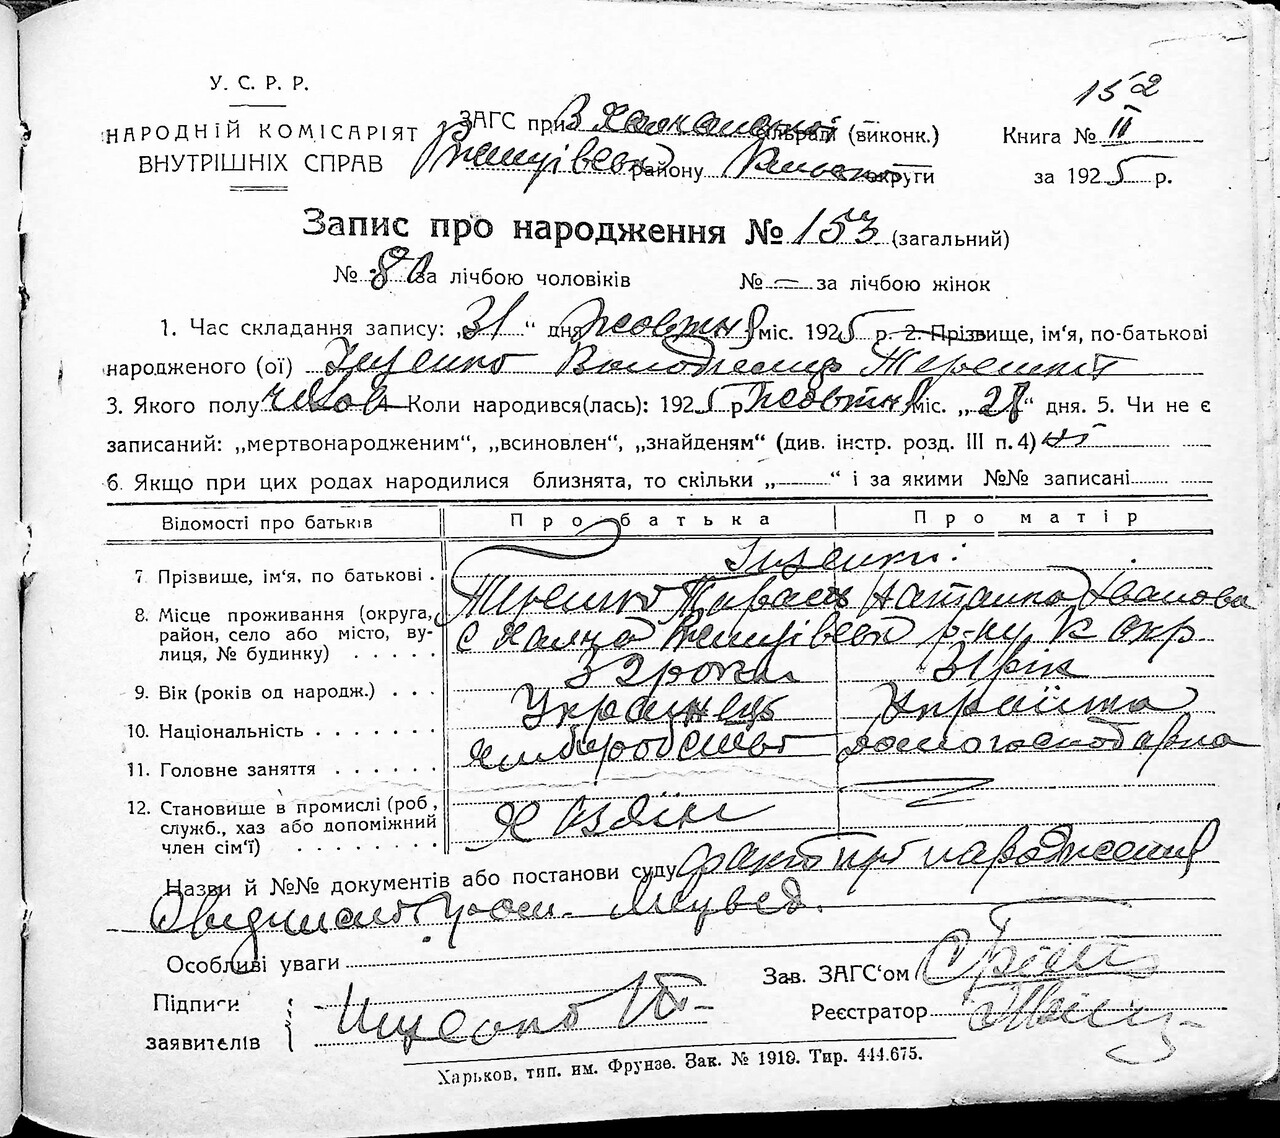 152
У. С. Р. Р.
НАРОДНІЙ КОМІСАРІЯТ
ВНУТРІШНІХ СПРАВ
ЗАГС при сільраді (виконк.)
району округи
Книга № III
за 1925 р.
Запис про народження № 153 (загальний)
№ 80 за лічбою чоловіків № — за лічбою жінок
1. Час складання запису: „31“ дня Жовтня міс. 1925 р. 2. Прізвище, ім'я, по-батькові
народженого (ої) Іщенко Володимир Терешків
3. Якого полу чолов 4. Коли народився(лась): 1925 р. Жовтня міс. „28“ дня. 5. Чи не є
записаний: „мертвонародженим“, „всиновлен“, „знайденям“ (див. інстр. розд. III п. 4) ні
6. Якщо при цих родах народилися близнята, то скільки „———“ і за якими №№ записані
Відомості про батьків Про батька Про матір
7. Прізвище, ім'я, по батькові . Іщенки:
Терешко Тарасів Наталка Іванова
8. Місце проживання (округа, район, село або місто, вулиця, № будинку) . . . . . с Халча р-ну К окр
9. Вік (років од народж.) . . . 32 роки 31 рік
10. Національність . . . . . . . Українець Українка
11. Головне заняття . . . . . . Хліборобство домогосподарка
12. Становище в промислі (роб., служб., хаз або допоміжний член сім'ї) . . . . . . . . Хазяїн
Назви й №№ документів або постанови суду факт про народження
Особливі уваги
Зав. ЗАГС'ом
Підписи
заявителів
Іщенко
Реєстратор
Харьков, тип. им. Фрунзе. Зак. № 1918. Тир. 444.675.